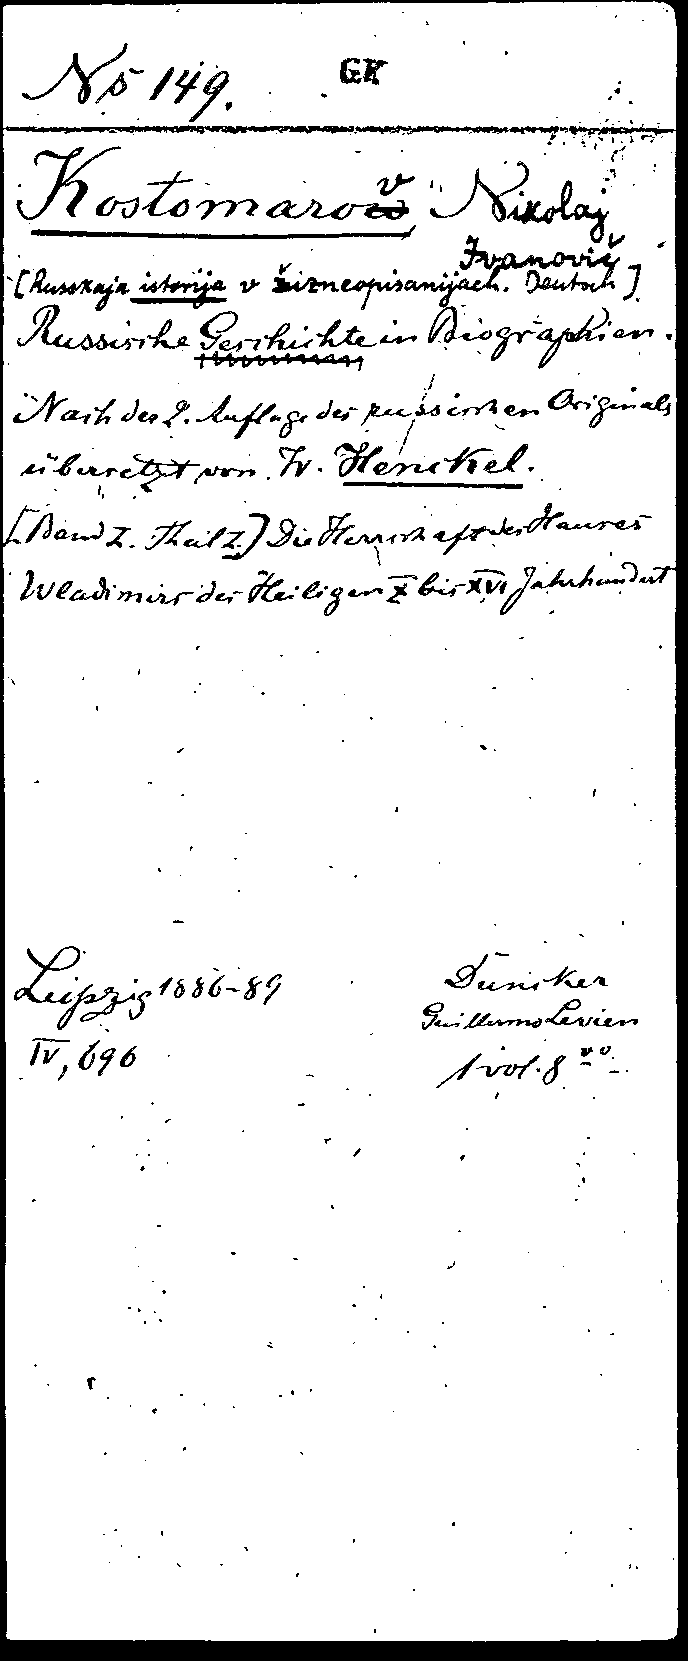 N 5 149.
GK
Kostomarov Nikolaj
Ivanovič
[Russkaja istorija v žizneopisanijach. Deutsch]
Russische Geschichte in Biographien.
Nach der 2. Auflage des russischen Originals
übersetzt von W. Henckel.
[Band I. Theil I.] Die Herrschaft des Hauses
Wladimirs des Heiligen X bis XVI Jahrhundert
Leipzig 1886-89
Duncker
Guillermo Levien
IV, 696
1 vol. 8vo